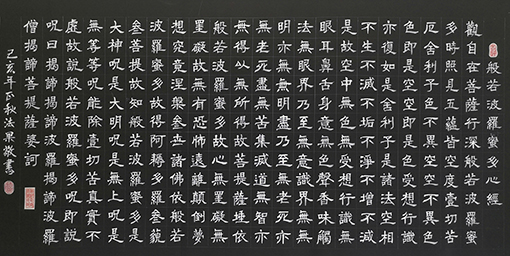 般若波羅蜜多心經
觀自在菩薩行深般若波羅蜜
多時照見五蘊皆空度壹切苦
厄舍利子色不異空空不異色
色即是空空即是色受想行識
亦復如是舍利子是諸法空相
不生不滅不垢不淨不增不減
是故空中無色無受想行識無
眼耳鼻舌身意無色聲香味觸
法無眼界乃至無意識界無無
明亦無無明盡乃至無老死亦
無老死盡無苦集滅道無智亦
無得以無所得故菩提薩埵依
般若波羅蜜多故心無罣礙無
罣礙故無有恐怖遠離顛倒夢
想究竟涅槃叁世諸佛依般若
波羅蜜多故得阿耨多羅叁藐
叁菩提故知般若波羅蜜多是
大神呪是大明呪是無上呪是
無等等呪能除壹切苦真實不
虛故說般若波羅蜜多呪即說
呪曰揭諦揭諦波羅揭諦波羅
僧揭諦菩提薩婆訶
己亥年正秋法果敬書